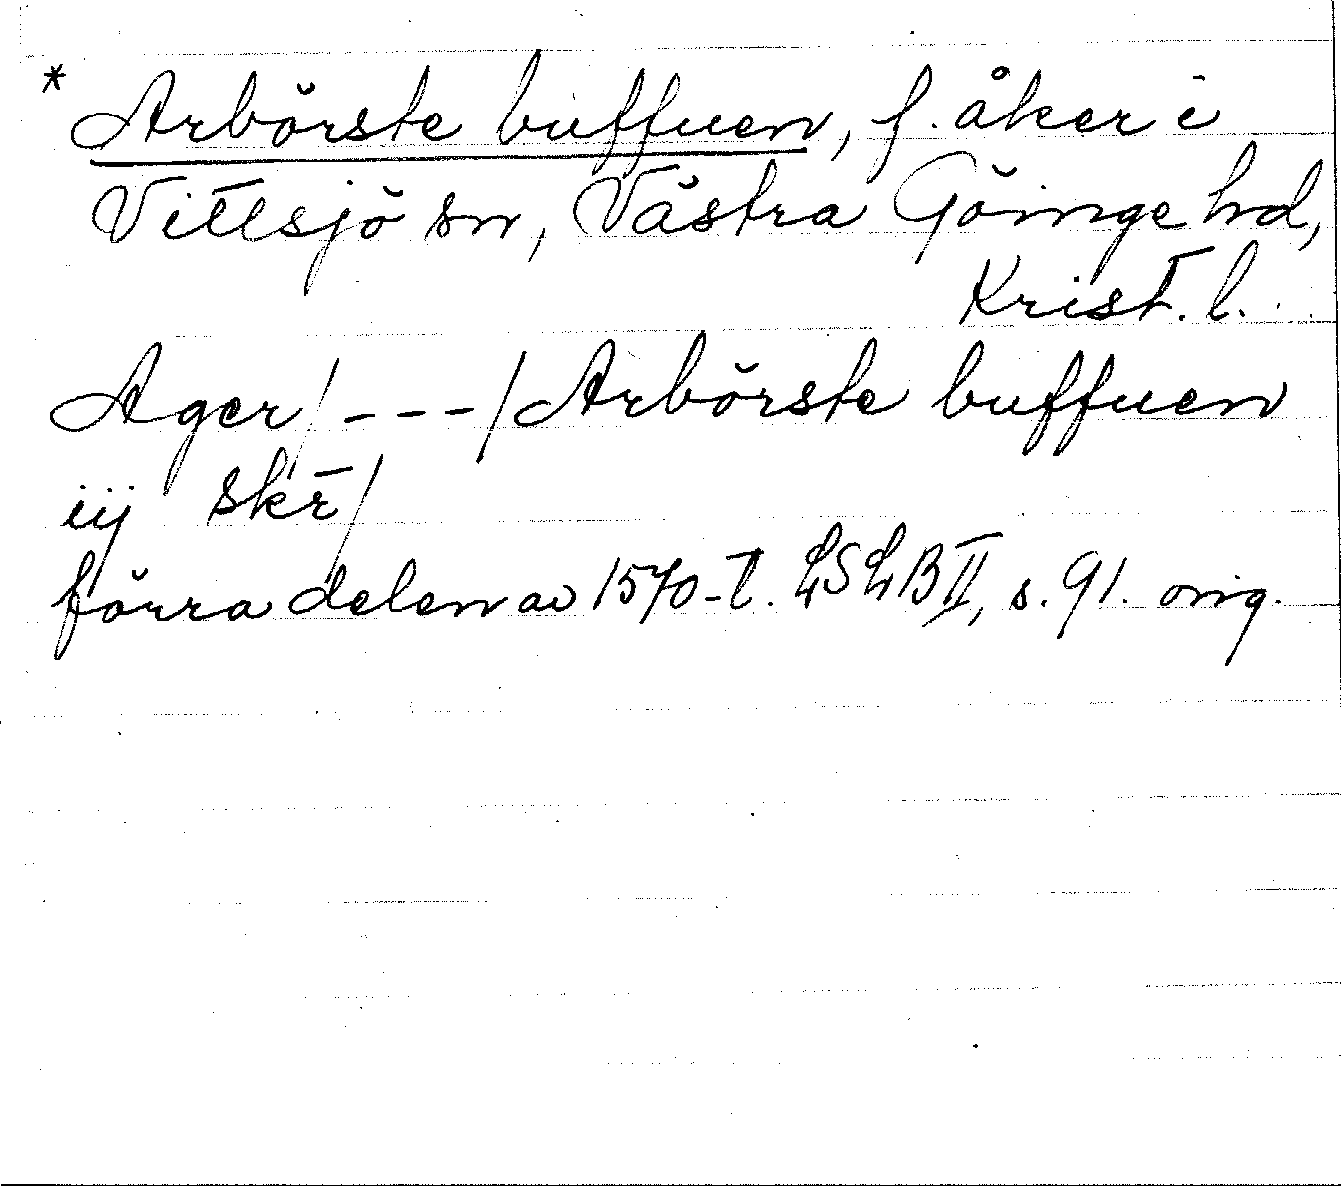 * Arbörste buffuen, f. åker i
Vittsjö sn, Västra Göinge hd,
Krist. l.
Ager/---/Arbörste buffuen
iij skr̄/
förra delen av 1570-t. LSLB II, s. 91. orig.